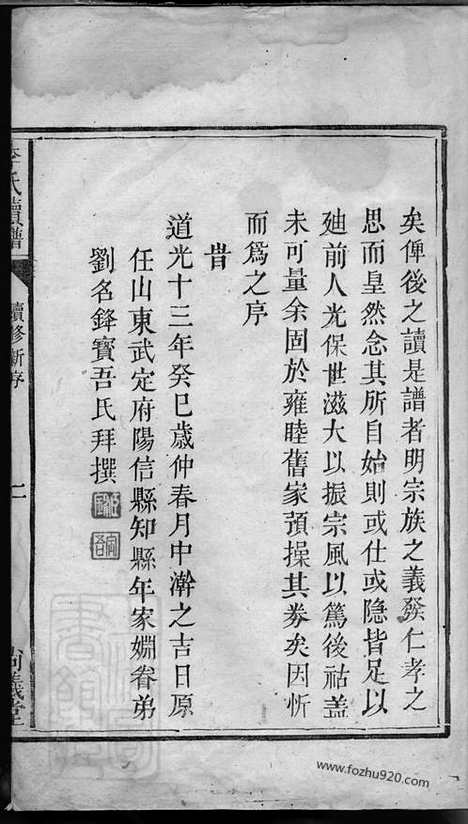 矣俾後之讀是譜者明宗族之義發仁孝之
思而皇然念其所自始則或仕或隐皆足以
廸前人光保世滋大以振宗風以篤後祜盖
未可量余固於雍睦舊家預操其券矣因忻
而爲之序
旹
道光十三年癸巳歲仲春月中澣之吉日原
任山東武定府陽信縣知縣年家婣眷弟
劉名鋒寶吾氏拜撰
李氏續譜
續修新序
尚義堂
www.fozhu920.com